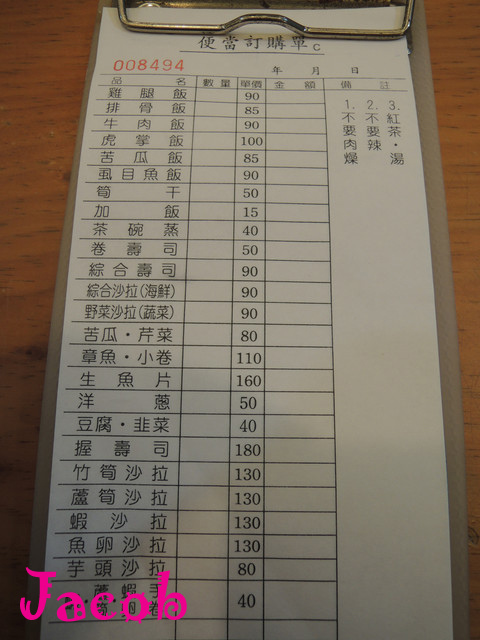 便當訂購單C
008494
年 月 日
品名 數量 單價 金額 備註
雞腿飯 90
排骨飯 85
牛肉飯 90
虎掌飯 100
苦瓜飯 85
虱目魚飯 90
筍干 50
加飯 15
茶碗蒸 40
卷壽司 50
綜合壽司 90
綜合沙拉(海鮮) 90
野菜沙拉(蔬菜) 90
苦瓜·芹菜 80
章魚·小卷 110
生魚片 160
洋蔥 50
豆腐·韭菜 40
握壽司 180
竹筍沙拉 130
蘆筍沙拉 130
蝦沙拉 130
魚卵沙拉 130
芋頭沙拉 80
蘆·蝦手
筍·卵卷 40
1.不要肉燥
2.不要辣
3.紅茶·湯
Jacob